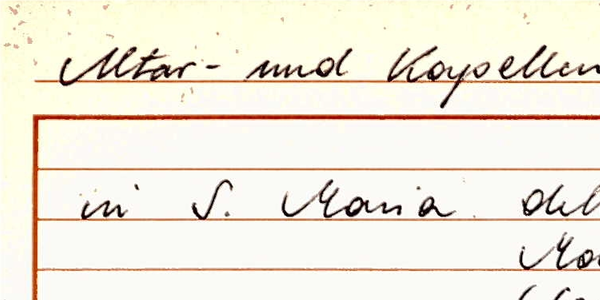 Altar- und Kapellen
in S. Maria del